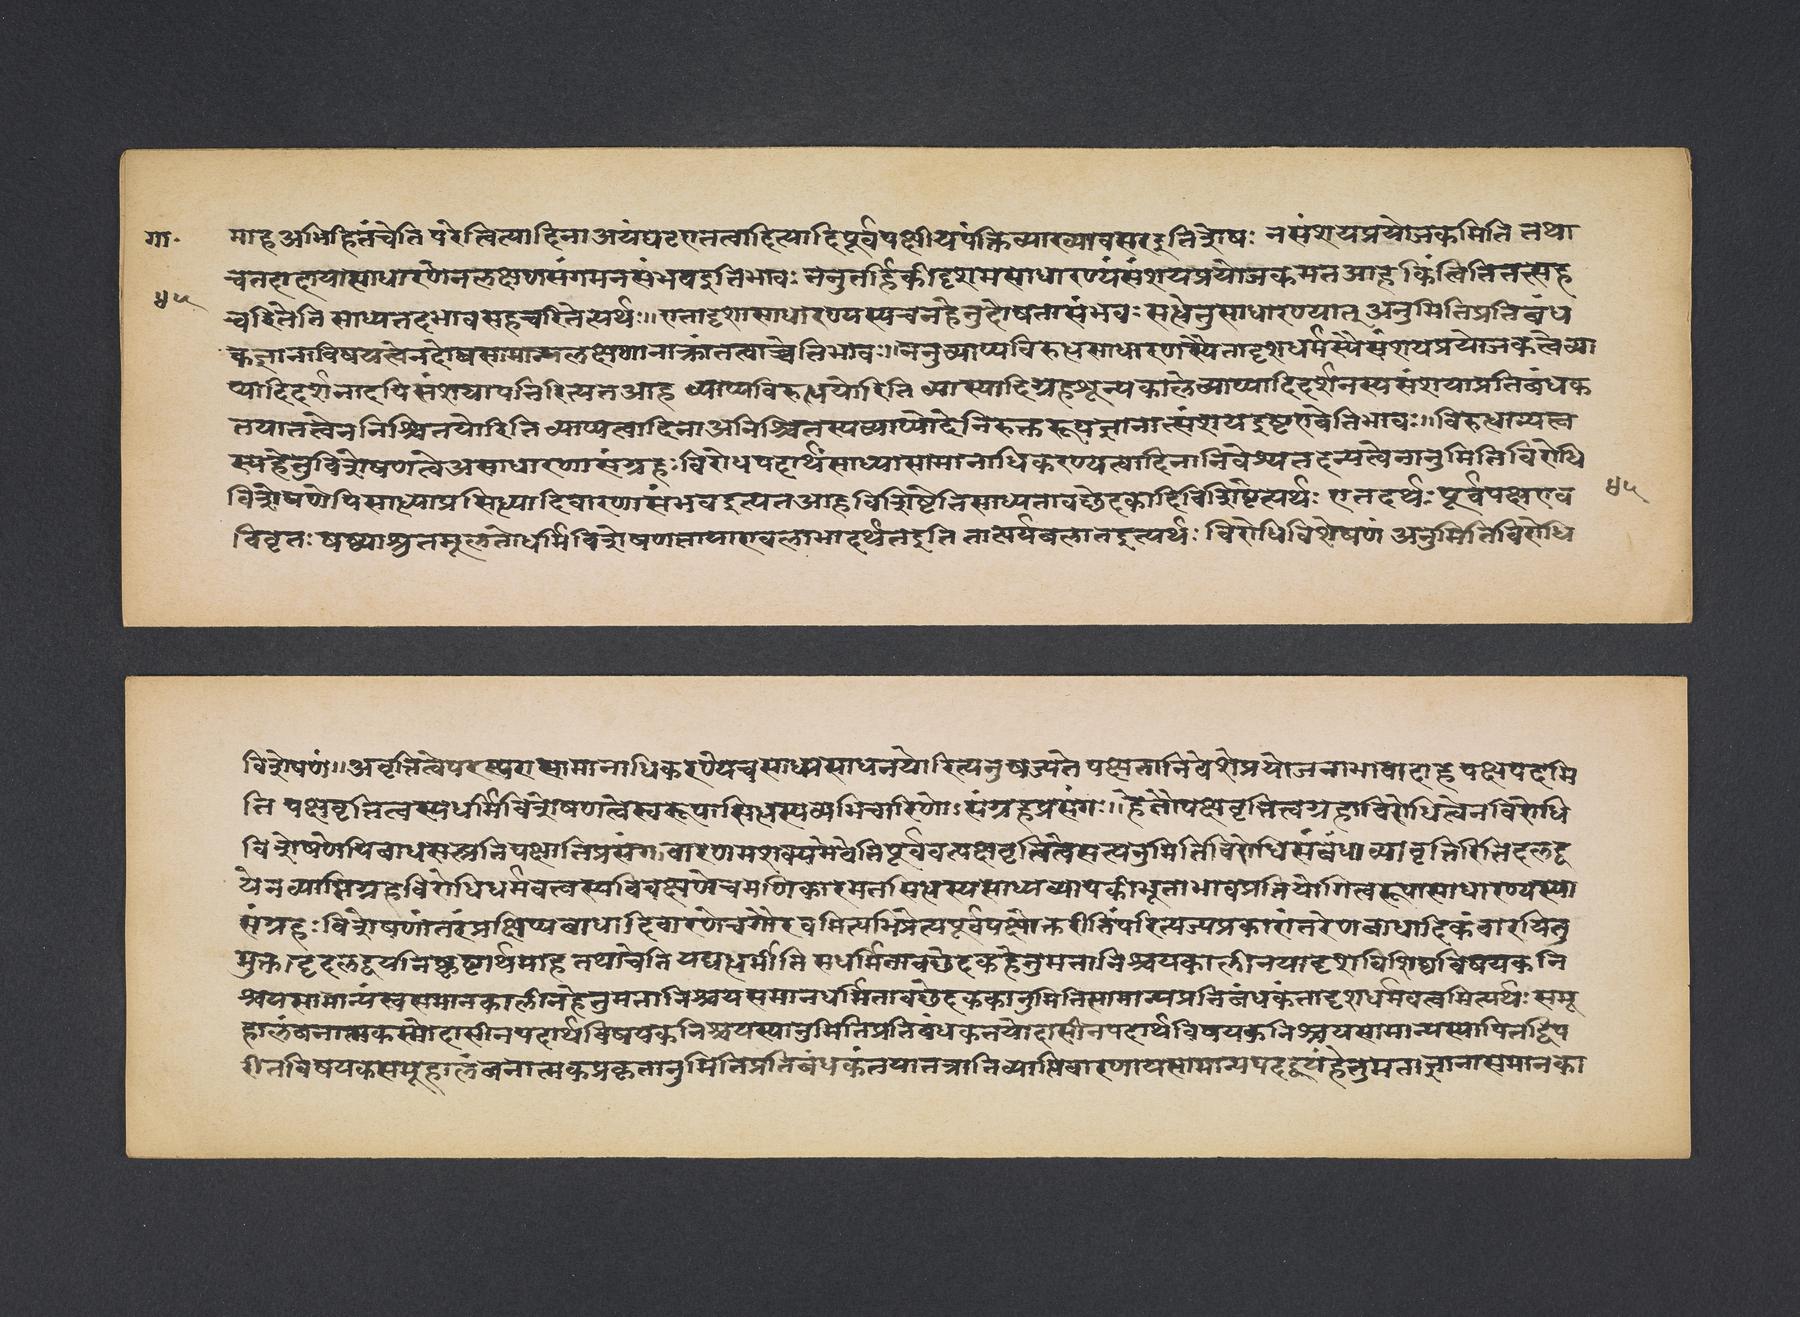 गा.
४५
माह अभिहितंचेति परेत्वित्यादिना अयंघटएतत्वादित्यादिपूर्वपक्षीयपंक्तिव्याख्यावसरइतिशेषः नसंशयप्रयोजकमिति तथा
चतद्दशायासाधारणेनलक्षणसंगमनसंभवइतिभावः ननुतर्हिकीदृशमसाधारण्यंसंशयप्रयोजकमतआह किंत्वितितत्सह
चरितेति साध्यतदभावसहचरितेत्यर्थः॥एतादृशासाधारण्यस्यचनहेतुदोषतासंभवः सद्धेतुसाधारण्यात् अनुमितिप्रतिबंध
कज्ञानाविषयत्वेनदोषसामान्यलक्षणानाक्रांतत्वाच्चेतिभावः॥ननुव्याप्यविरुद्धसाधारणस्यैतादृशधर्मस्यैसंशयप्रयोजकत्वेव्या
प्यादिदर्शनादपिसंशयापत्तिरित्यतआह व्याप्यविरुद्धयोरिति व्याप्त्यादिग्रहशून्यकालेव्याप्यादिदर्शनस्यसंशयाप्रतिबंधक
तयातत्वेननिश्चितयोरिति व्याप्यत्वादिनाअनिश्चितस्यव्याप्यादेर्निरुक्तरूपज्ञानात्संशयइष्टएवेतिभावः॥विरुद्धान्यत्व
स्यहेतुविशेषणत्वेअसाधारणासंग्रहः विरोधपदार्थसाध्यासामानाधिकरण्यत्वादिनानिवेश्यतदन्यत्वेनानुमितिविरोधि
विशेषणेपिसाध्याप्रसिद्ध्यादिवारणासंभवइत्यतआहविशिष्टेतिसाध्यतावछेदकादिविशिष्टेत्यर्थः एतदर्थः पूर्वपक्षएव
४५
विवृतः षष्ठ्याश्रुतमूलतोधर्मिविशेषणतायाएवलाभादर्थतइति तात्पर्यबलातइत्यर्थः विरोधिविशेषणं अनुमितिविरोधि
विशेषणं॥अवृत्तित्वेपरस्परासामानाधिकरण्येचसाध्यसाधनयोरित्यनुषज्यते पक्षतानिवेशेप्रयोजनाभावादाह पक्षपदमि
ति पक्षवृत्तित्वस्यधर्मिविशेषणत्वेस्वरूपासिद्धस्यव्यभिचारिणोऽसंग्रहप्रसंगः॥हेतौपक्षवृत्तित्वग्रहाविरोधित्वेनविरोधि
विशेषणेपिबाधसत्प्रतिपक्षातिप्रसंगवारणमशक्यमेवेतिपूर्ववत्पक्षवृत्तित्वेसत्यनुमितिविरोधिसंबंधाव्यावृत्तिरितिदलद्व
येनव्याप्तिग्रहविरोधिधर्मवत्वस्यविवक्षणेचमणिकारमतसिद्धस्यसाध्यव्यापकीभूताभावप्रतियोगित्वरूपासाधारण्यस्या
संग्रहः विशेषणांतरंप्रक्षिप्यबाधादिवारणेचगौरवमित्यभिप्रेत्यपूर्वपक्षोक्तरीतिंपरित्यज्यप्रकारांतरेणबाधादिकंवारयितु
मुक्तादृदलद्वयनिष्कृष्टार्थमाह तथाचेति यद्यद्धर्मीति सधर्मितावछेदकहेतुमत्तानिश्चयकालीनयादृशविशिष्टविषयकनि
श्चयसामान्यंस्वसमानकालीनहेतुमत्तानिश्चयसमानधर्मितावछेदककानुमितिसामान्यप्रतिबंधकंतादृशधर्मवत्वमित्यर्थः समू
हालंबनात्मकस्योदासीनपदार्थविषयकनिश्चयस्यानुमितिप्रतिबंधकतयोदासीनपदार्थविषयकनिश्चयसामान्यस्यापितद्विप
रीतविषयकसमूहालंबनात्मकप्रकृतानुमितिप्रतिबंधकतयातत्रातिव्याप्तिवारणायसामान्यपदद्वयंहेतुमत्ताज्ञानासमानका